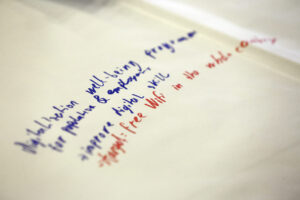 digitalisation well-being programme
for population & employees
→ improve digital skill
→ target: free WiFi in the whole country